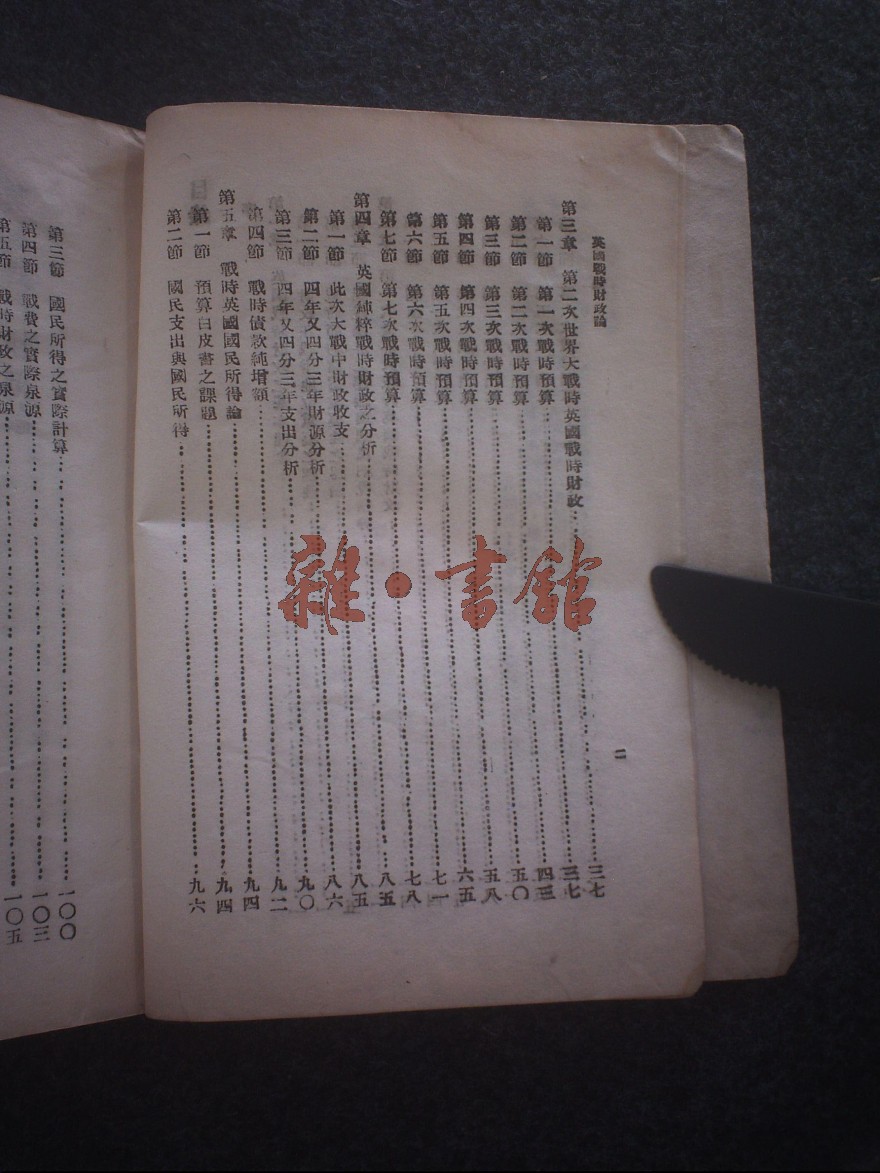 英國戰時財政論
二
第三章 第二次世界大戰時英國戰時財政……三七
第一節 第一次戰時預算……三七
第二節 第二次戰時預算……四三
第三節 第三次戰時預算……五〇
第四節 第四次戰時預算……五八
第五節 第五次戰時預算……六五
第六節 第六次戰時預算……七一
第七節 第七次戰時預算……七八
第四章 英國純粹戰時財政之分析……八五
第一節 此次大戰中財政收支……八五
第二節 四年又四分三年財源分析……八六
第三節 四年又四分三年支出分析……九〇
第四節 戰時債款純增額……九二
第五章 戰時英國國民所得論……九四
第一節 預算白皮書之課題……九四
第二節 國民支出與國民所得……九六
第三節 國民所得之實際計算……一〇〇
第四節 戰費之實際泉源……一〇三
第五節 戰時財政之泉源……一〇五
雜·書館